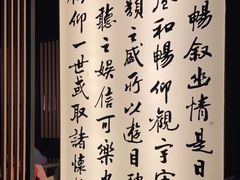 暢叙幽情是日
風和暢仰觀宇宙
類之盛所以遊目
聽之娛信可樂也
仰一世或取諸懷抱